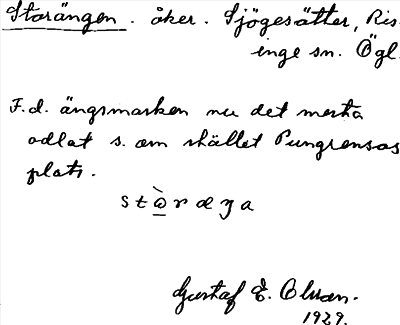 Storängen. åker. Sjögesätter, Ris-
inge sn. Ögl.
F.d. ängsmarken nu det mesta
odlat s. om stället Pungrensas
plats.
Gustaf E. Olsson.
1929.